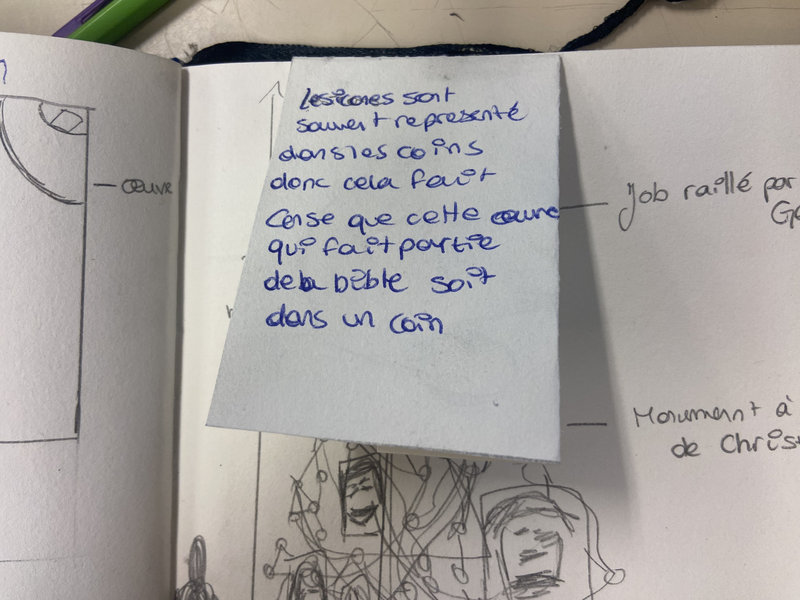 œuvre
les icones sont
souvent representé
dans les coins
donc cela fait
cense que cette œuvre
qui fait partie
de la bible soit
dans un coin
Job raillé par
Monument à
de Christ